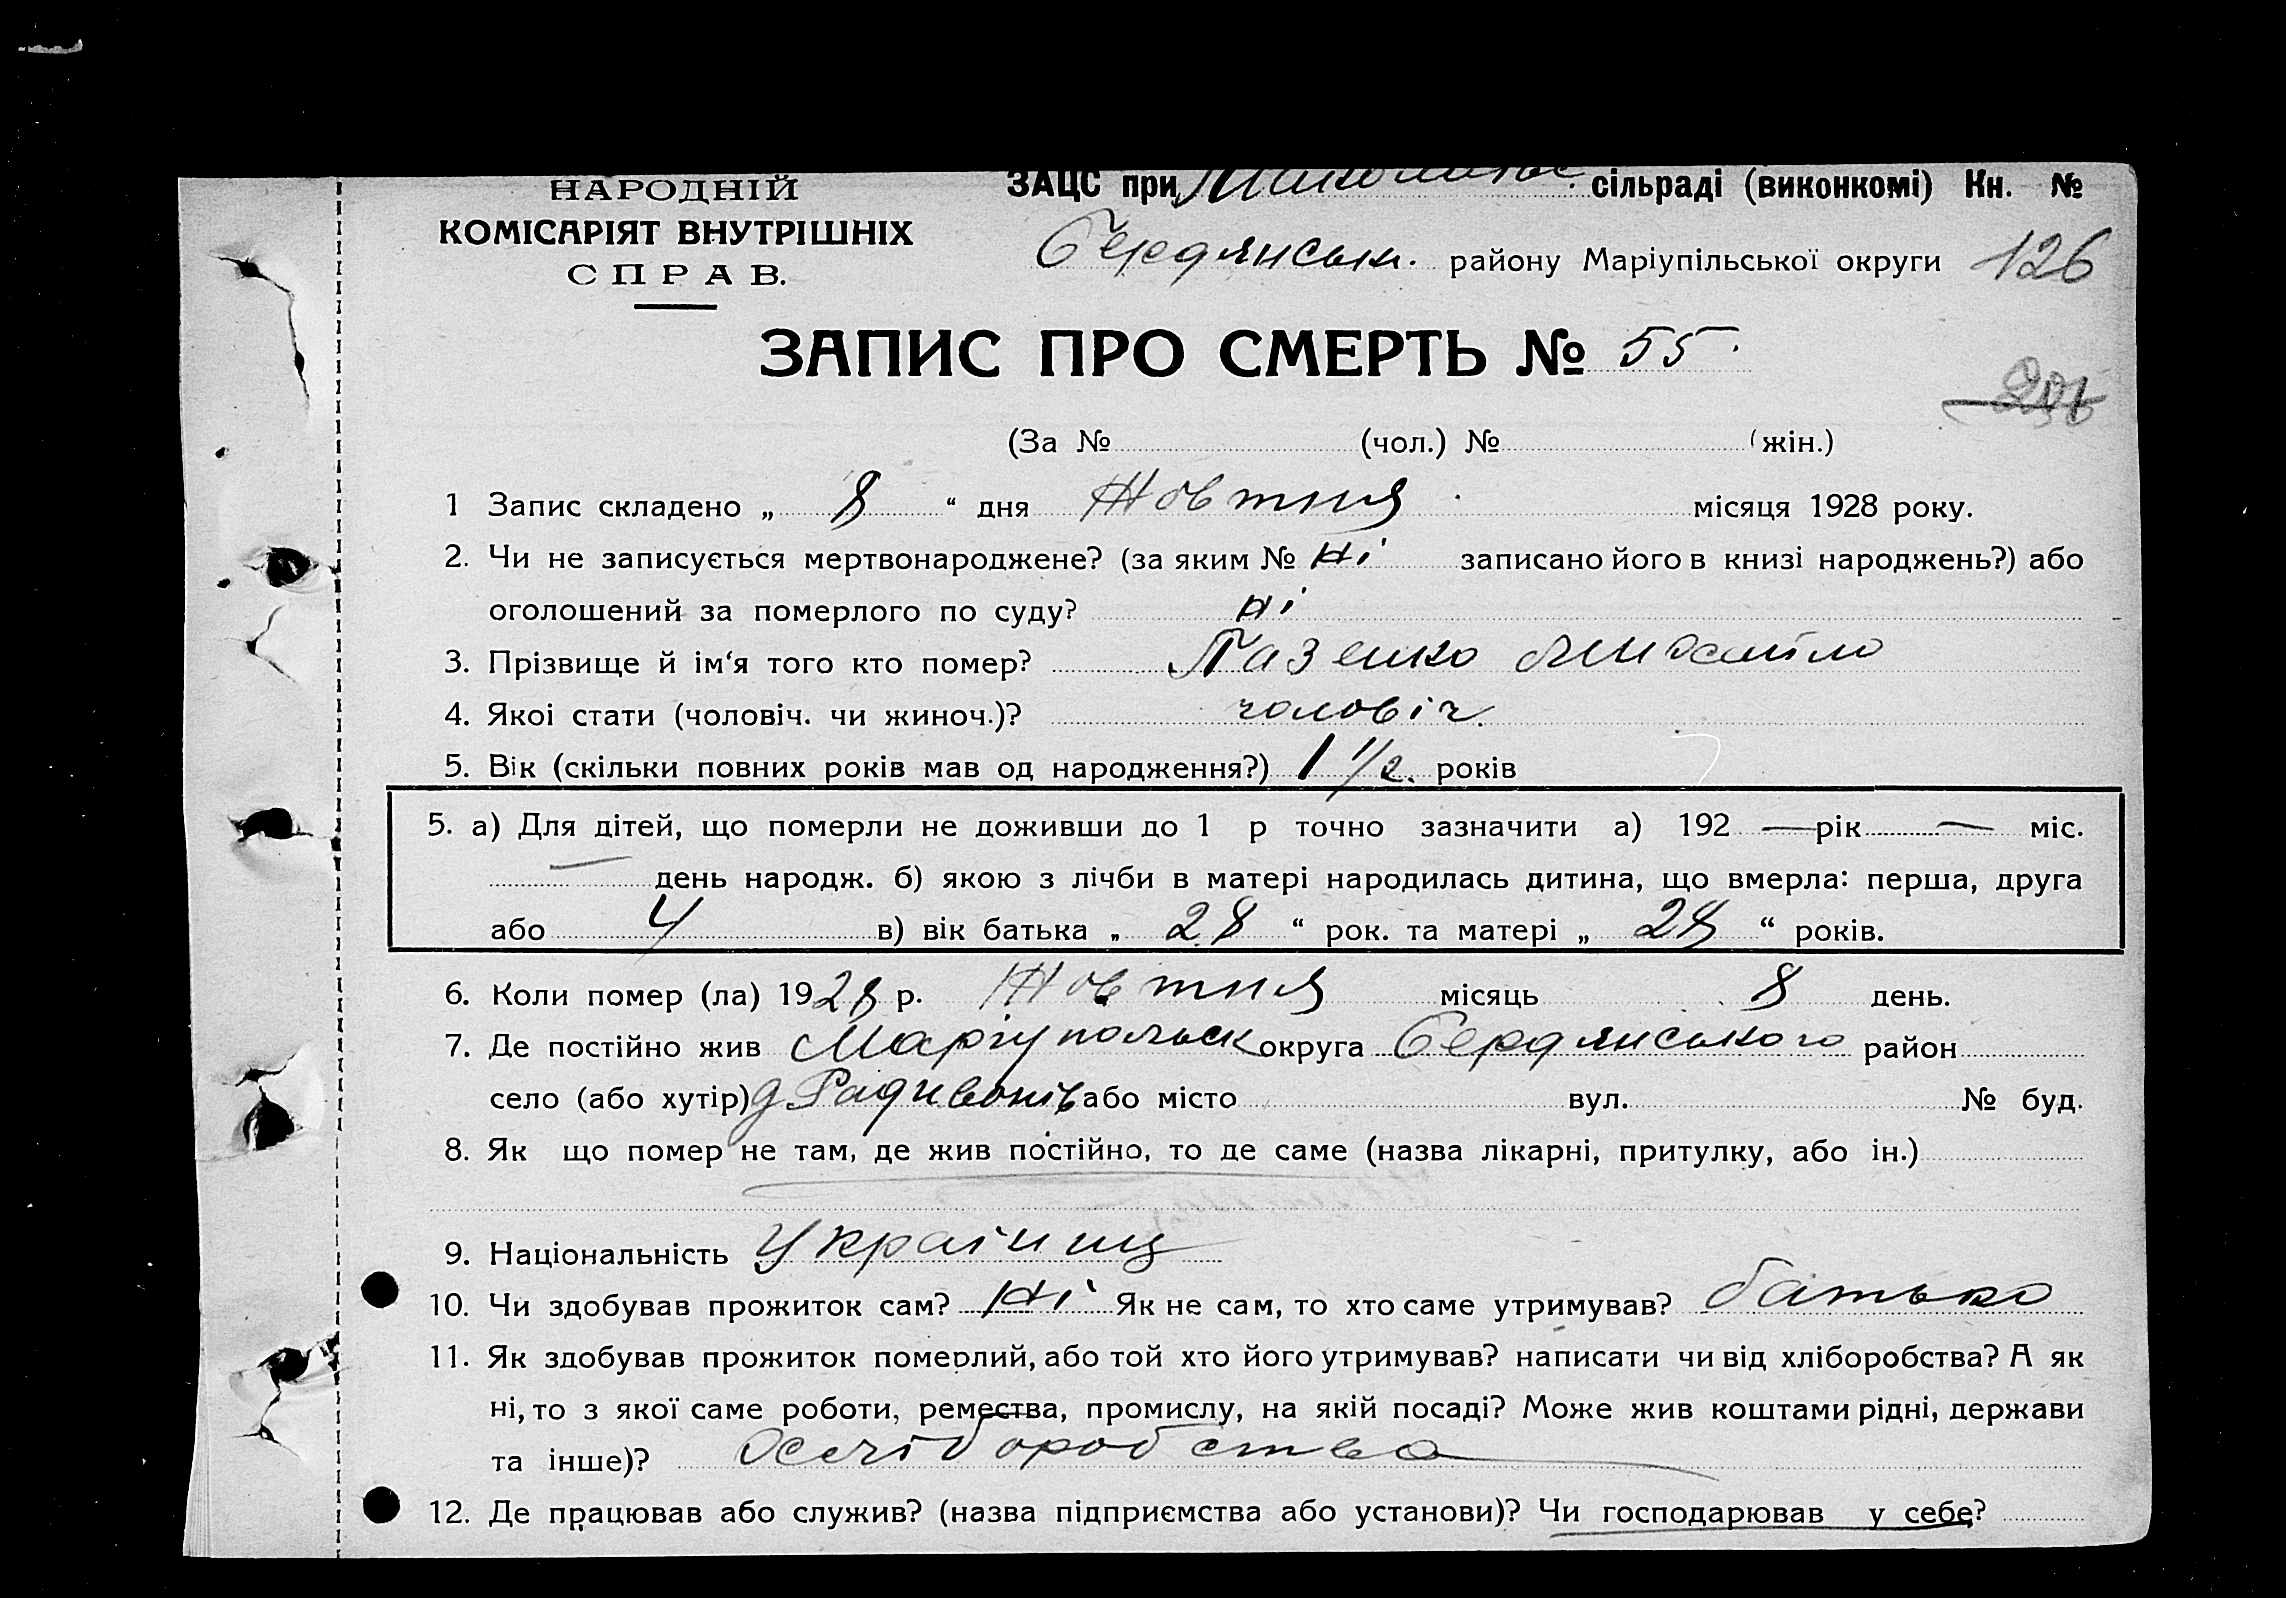 НАРОДНІЙ
КОМІСАРІЯТ ВНУТРІШНІХ
СПРАВ.
ЗАЦС при сільраді (виконкомі) Кн. №
Бердянськ. району Маріупільської округи 126
ЗАПИС ПРО СМЕРТЬ № 55.
(За № (чол.) № (жін.)
1 Запис складено „ 8 “ дня Жовтня місяця 1928 року.
2. Чи не записується мертвонароджене? (за яким № Ні записано його в книзі народжень?) або
оголошений за померлого по суду? ні
3. Прізвище й ім‘я того кто помер? Пазенко Михайло
4. Якоі стати (чоловіч. чи жиноч.)? чоловіч.
5. Вік (скільки повних років мав од народження?) 1 1/2. років
5. а) Для дітей, що померли не доживши до 1 р точно зазначити а) 192 — рік — міс.
— день народж. б) якою з лічби в матері народилась дитина, що вмерла: перша, друга
або 4 в) вік батька „ 28 “ рок. та матері „ 28 “ років.
6. Коли помер (ла) 1928 р. Жовтня місяць 8 день.
7. Де постійно жив Маріупольськ округа Бердянського район
село (або хутір) д Радивонів або місто вул. № буд.
8. Як що помер не там, де жив постійно, то де саме (назва лікарні, притулку, або ін.)
9. Національність Українц
10. Чи здобував прожиток сам? Ні Як не сам, то хто саме утримував? батько
11. Як здобував прожиток померлий, або той хто його утримував? написати чи від хліборобства? А як
ні, то з якої саме роботи, ремества, промислу, на якій посаді? Може жив коштами рідні, держави
та інше)? Хліборобства
12. Де працював або служив? (назва підприємства або установи)? Чи господарював у себе?